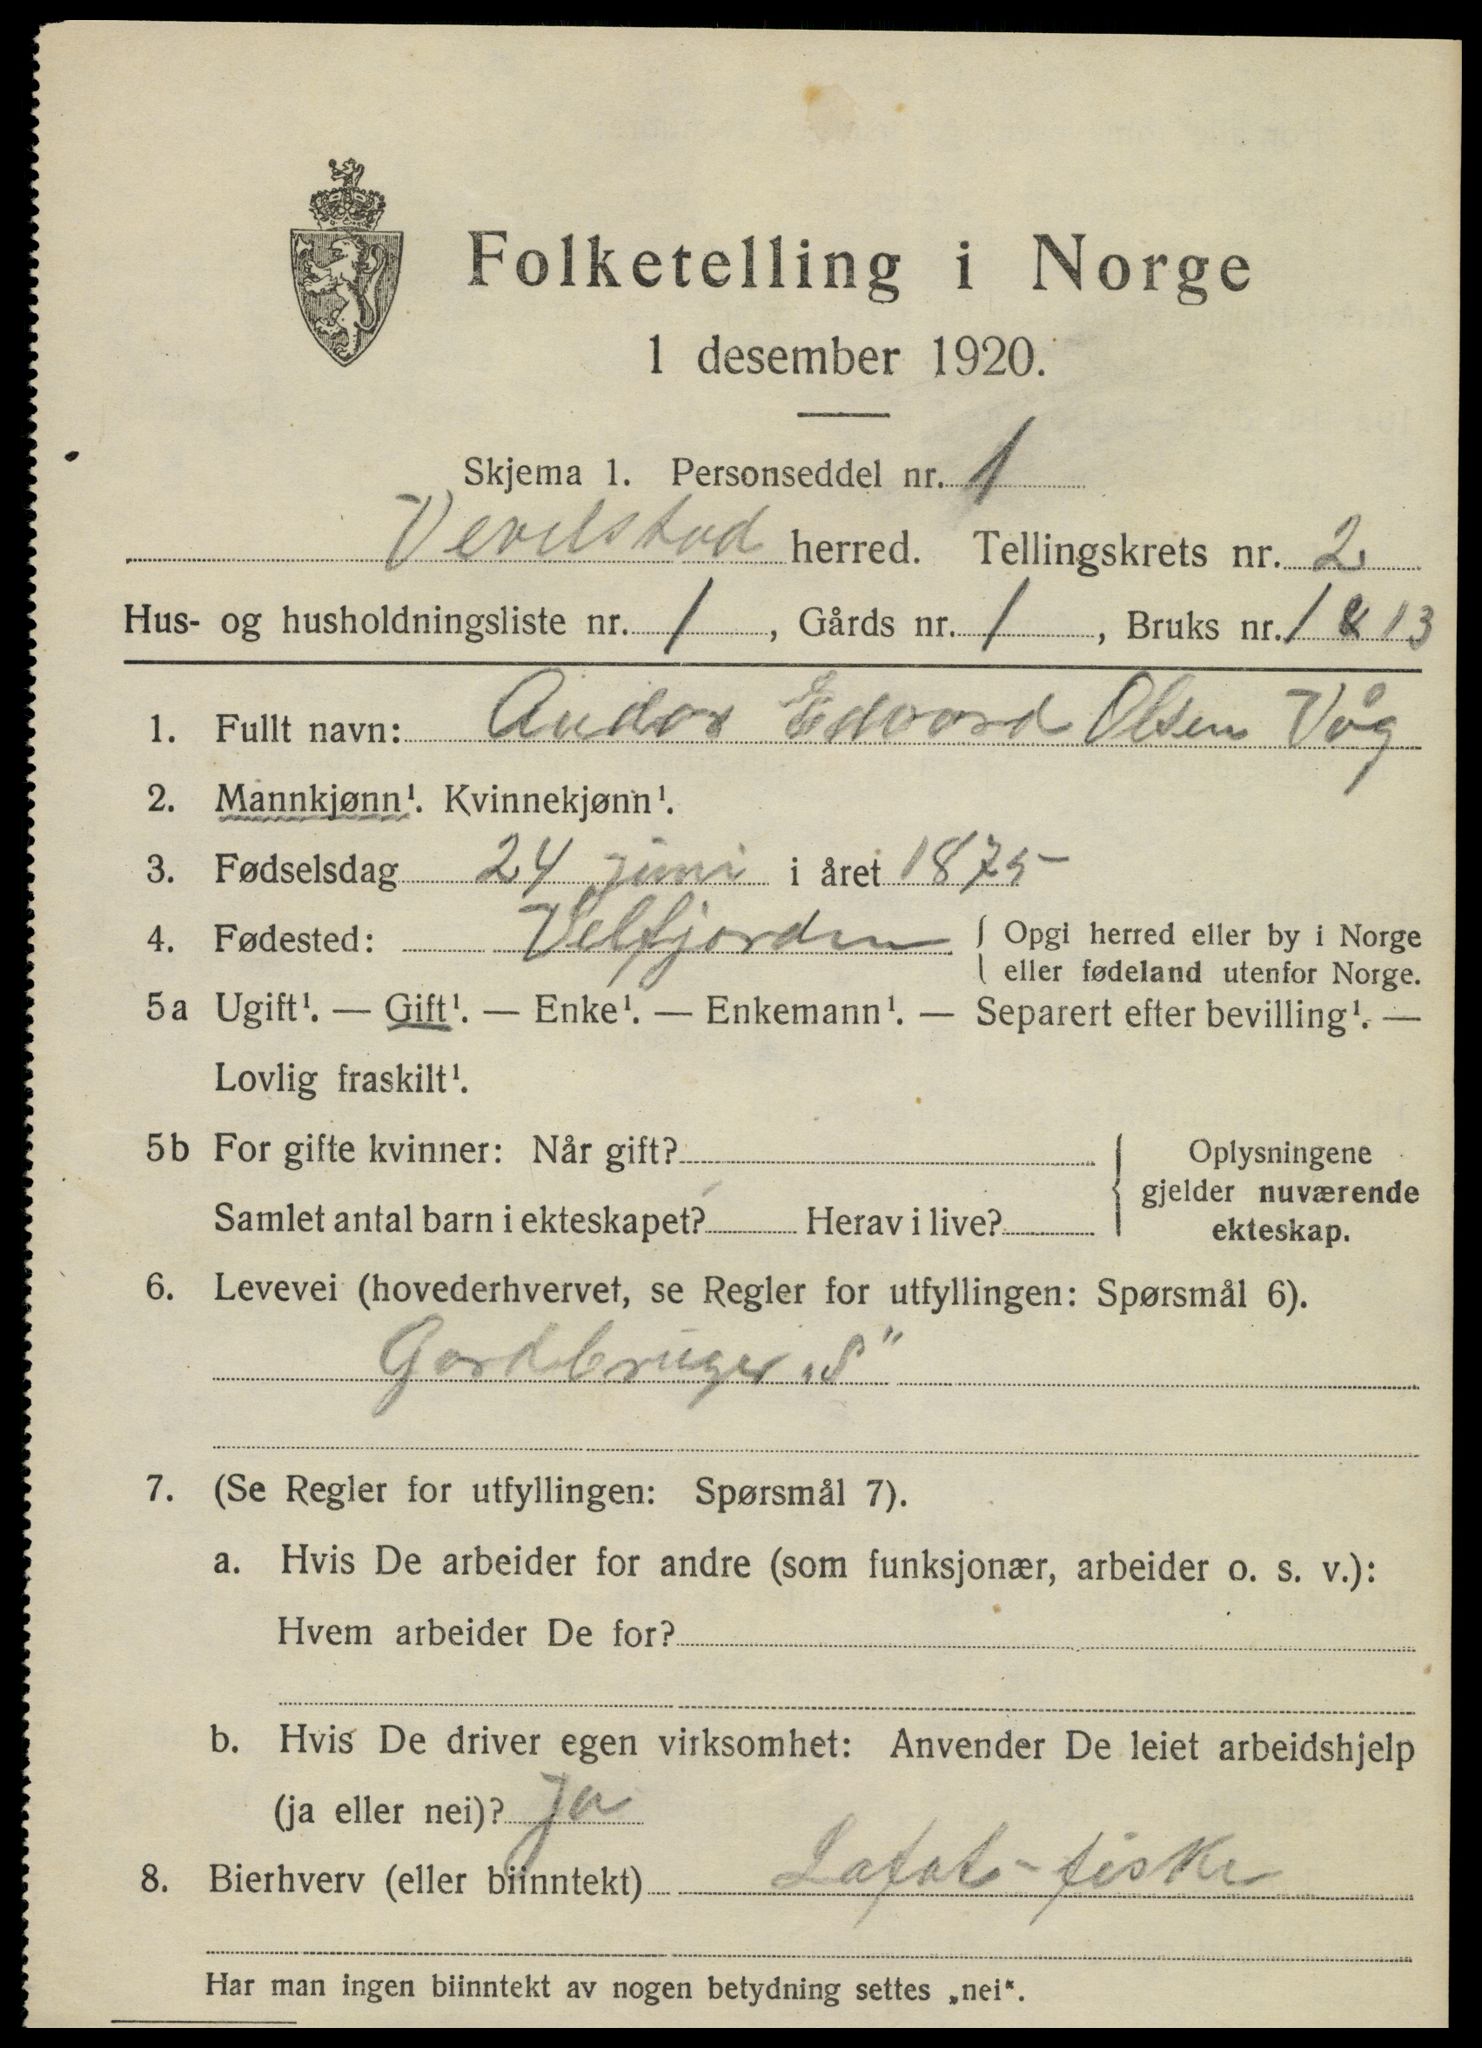 Folketelling i Norge
1 desember 1920.
Skjema 1. Personseddel nr. 1
Vevelstad herred. Tellingskrets nr. 2
Hus- og husholdningsliste nr. 1, Gårds nr. 1, Bruks nr. 1 & 13
1. Fullt navn: Andor Edvard Olsen Våg
2. Mannkjønn¹. Kvinnekjønn¹.
3. Fødselsdag 24 juni i året 1875
4. Fødested: Velfjorden { Opgi herred eller by i Norge
eller fødeland utenfor Norge.
5a Ugift¹. — Gift¹. — Enke¹. — Enkemann¹. — Separert efter bevilling¹. —
Lovlig fraskilt¹.
5b For gifte kvinner: Når gift? { Oplysningene
gjelder nuværende
Samlet antal barn i ekteskapet? Herav i live?
ekteskap.
6. Levevei (hovederhvervet, se Regler for utfyllingen: Spørsmål 6).
Gardbruger „S"
7. (Se Regler for utfyllingen: Spørsmål 7).
a. Hvis De arbeider for andre (som funksjonær, arbeider o. s. v.):
Hvem arbeider De for?
b. Hvis De driver egen virksomhet: Anvender De leiet arbeidshjelp
(ja eller nei)? Ja
8. Bierhverv (eller biinntekt) Lofot-fiske
Har man ingen biinntekt av nogen betydning settes „nei".